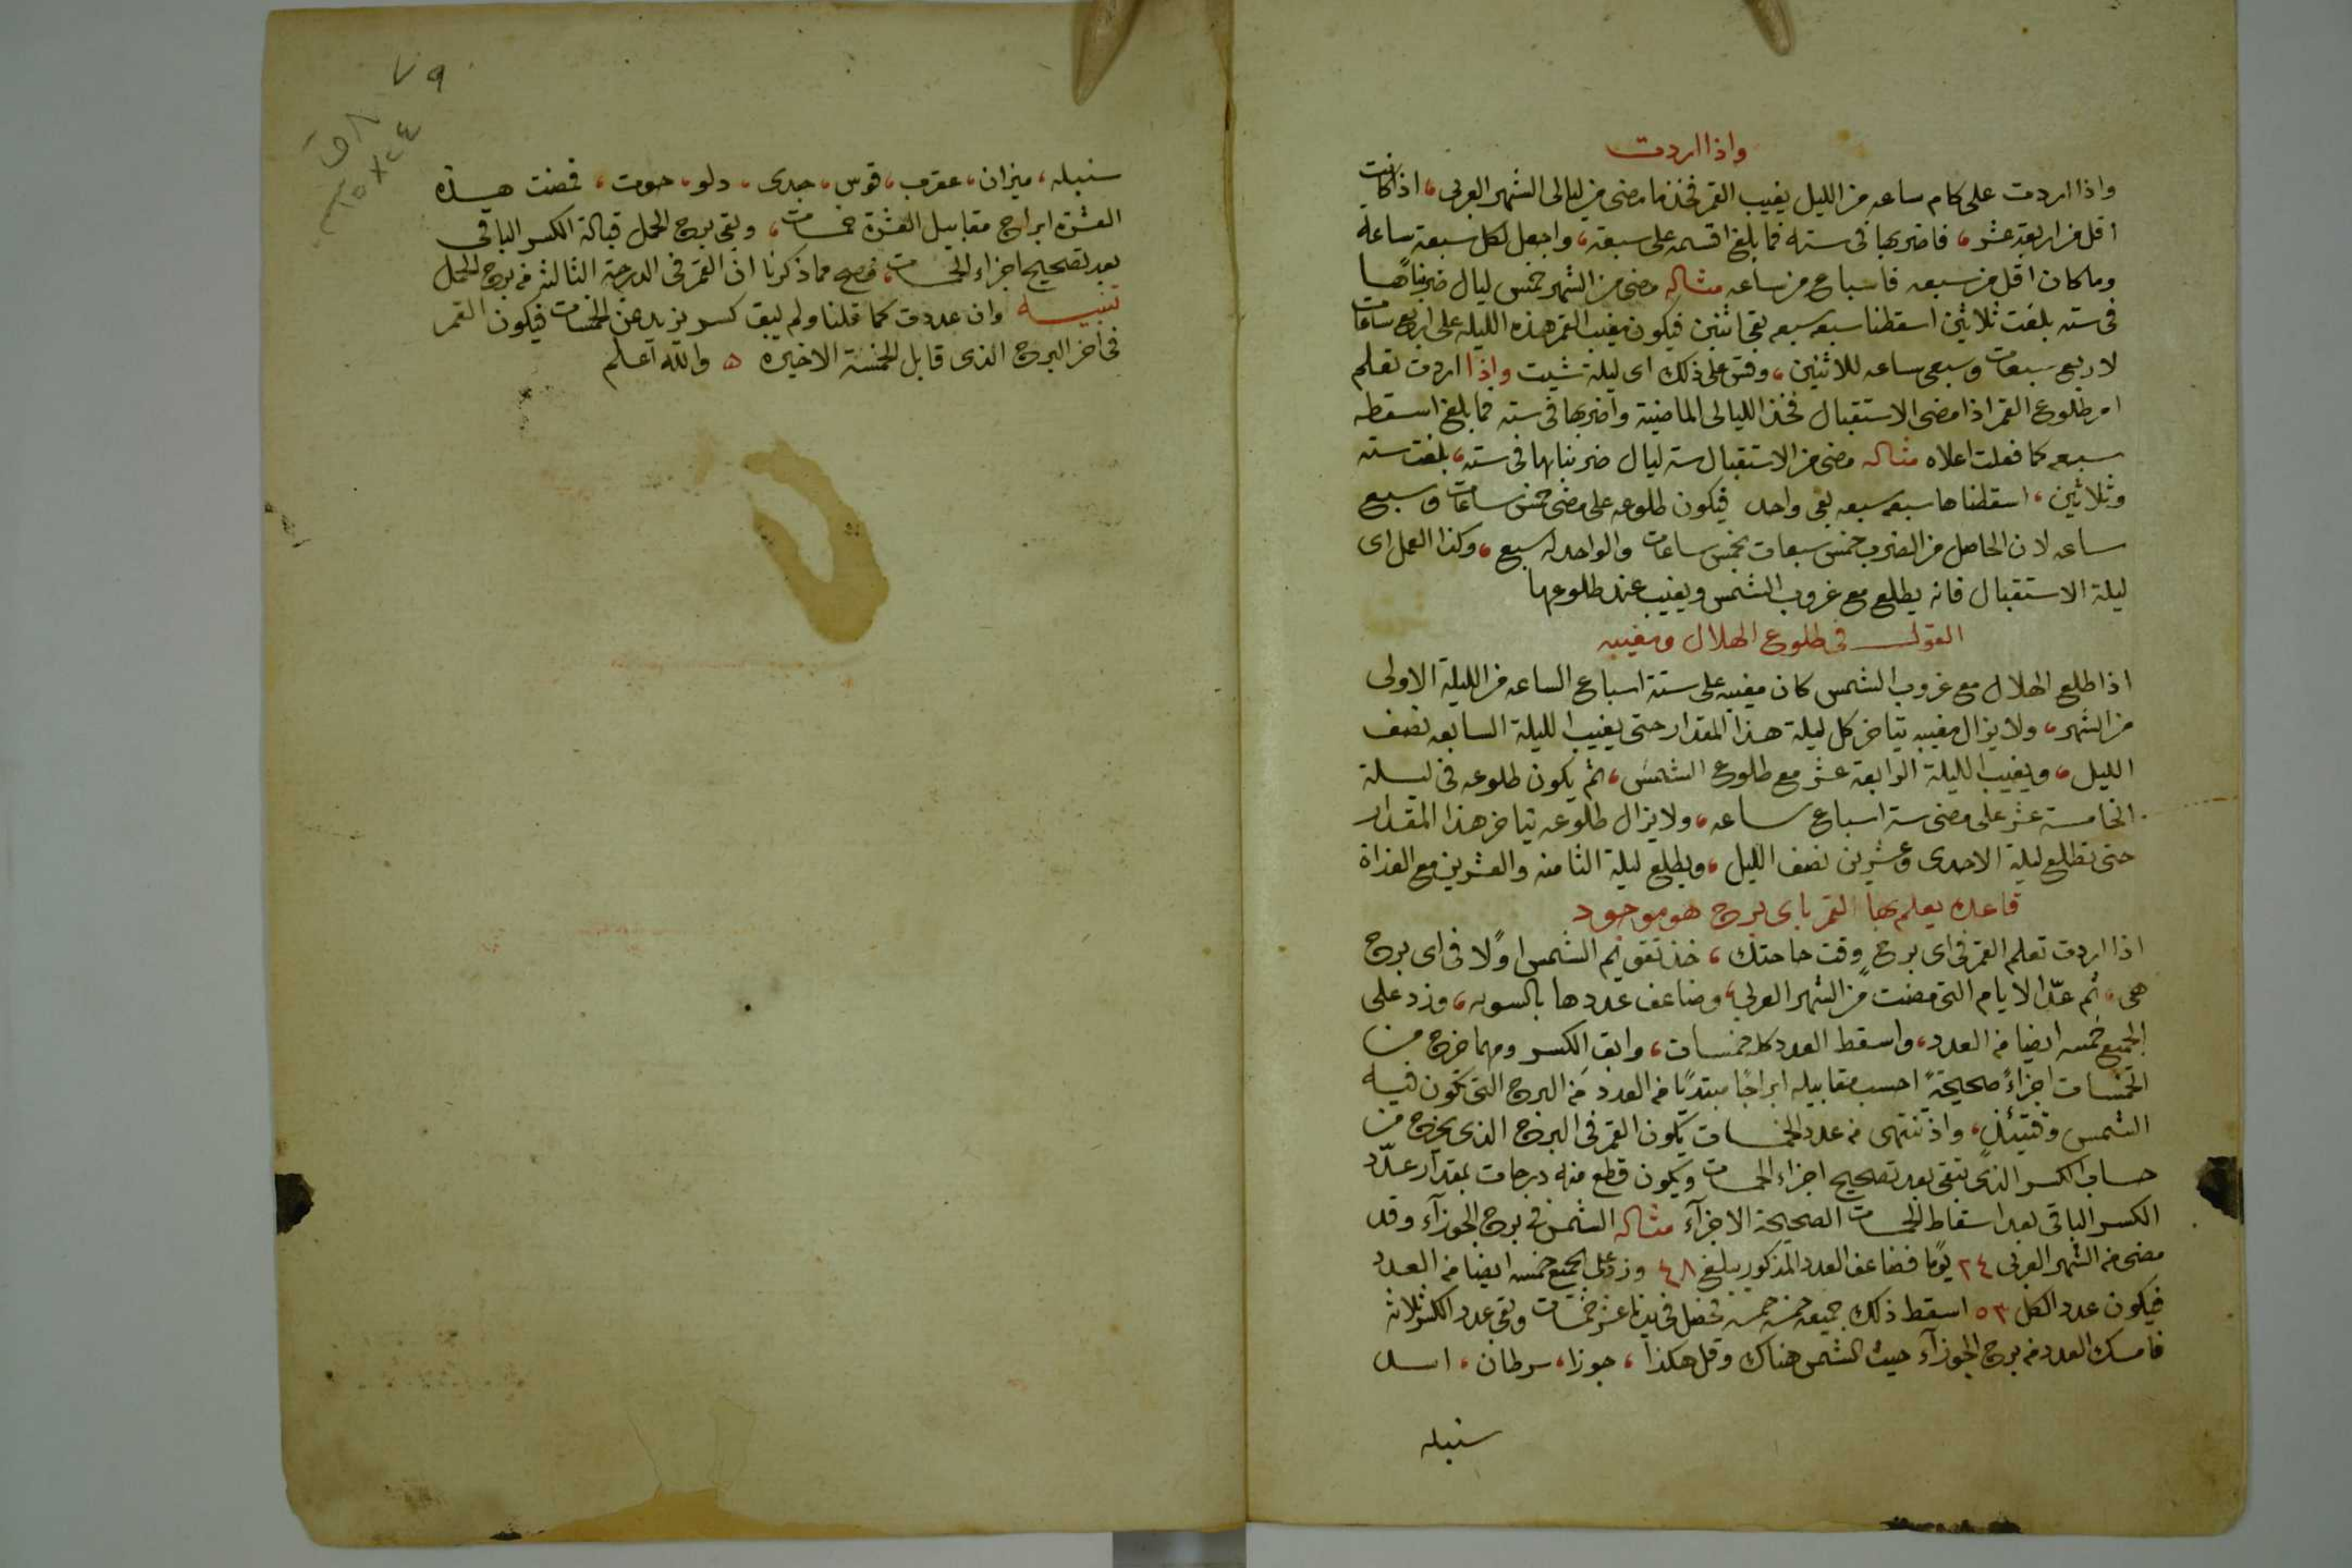 واذا اردت
واذا اردت على كام ساعه من الليل يغيب القمر فخذ ما مضى من ليالى الشهر العربى، اذا كانت
اقل من اربعة عشر، فاضربها فى سته فما بلغ اقسمه على سبعة، واجعل لكل سبعة ساعه
وما كان اقل من سبعه فاسباع من ساعه مثاله مضى من الشهر خمس ليال ضربناها
فى سته بلغت ثلاثين اسقطنا سبعه سبعه بقى اثنين فيكون مغيب القمر هذه الليله على اربع ساعات
لاربع سبعات وسبعى ساعه للاثنين، وقس على ذلك اى ليلة شيت واذا اردت تعلم
امر طلوع القمر اذا مضى الاستقبال فخذ الليالى الماضية واضربها فى سته فما بلغ اسقطه
سبعه كما فعلت اعلاه مثاله مضى من الاستقبال سته ليال ضربناها فى سته، بلغت سته
وثلاثين، اسقطناها سبعه سبعه بقى واحد فيكون طلوعه على مضى خمس ساعات وسبع
ساعه لان الحاصل من الضرب خمس سبعات بخمس ساعات والواحد له سبع، وكذا العمل اى
ليلة الاستقبال فانه يطلع مع غروب الشمس ويغيب عند طلوعها
القول فى طلوع الهلال ومغيبه
اذا طلع الهلال مع غروب الشمس كان مغيبه على ستة اسباع الساعه من الليلة الاولى
من الشهر، ولا يزال مغيبه يتاخر كل ليلة هذا المقدار حتى يغيب الليلة السابعه نصف
الليل، ويغيب الليلة الرابعة عشر مع طلوع الشمس، ثم يكون طلوعه فى ليلة
الخامسة عشر على مضى ستة اسباع ساعه، ولا يزال طلوعه يتاخر هذا المقدار
حتى تطلع ليلة الاحدى وعشرين نصف الليل، ويطلع ليلة الثامنه والعشرين مع الغداة
قاعده يعلم بها القمر باى برج هو موجود
اذا اردت تعلم القمر فى اى برج وقت حاجتك، خذ تقويم الشمس اولًا فى اى برج
هى، ثم عدّ الايام التى مضت من الشهر العربى، وضاعف عددها بالسويه، وزد على
الجميع خمسه ايضا من العدد، واسقط العدد كله خمسات، وابق الكسر ومهما خرج من
الخمسات اجزاءً صحيحةً احسب مقابيله ابراجًا مبتديًا من العدد من البرج التى تكون فيه
الشمس وقتيئذٍ، واذ تنتهى من عدد الخمسات يكون القمر فى البرج الذى يخرج من
حساب الكسر الذى تبقى بعد تصحيح اجزاء الخمسات ويكون قطع منه درجات بمقدار عدد
الكسر الباقى بعد اسقاط الخمسات الصحيحة الاجزآء مثاله الشمس فى برج الجوزآء وقد
مضى من الشهر العربى ٢٤ يومًا فضاعف العدد المذكور يبلغ ٤٨ وزد على الجميع خمسه ايضا من العدد
فيكون عدد الكل ٥٣ اسقط ذلك جميعه خمسه خمسه فحصل فى يدنا عشر خمسات وبقى عدد الكسر ثلاثه
فامسك العدد من برج الجوزآء حيث الشمس هناك وقل هكذا، جوزا، سرطان، اسد
سنبله
٧٩
سنبله، ميزان، عقرب، قوس، جدى، دلو، حوت، فمضت هذه
العشرة ابراج مقابيل العشرة خمسات، وبقى برج الحمل قبالة الكسر الباقى
بعد تصحيح اجزاء الخمسات، فصح مما ذكرنا ان القمر فى الدرجة الثالثه من برج الحمل
تنبيه وان عددت كما قلنا ولم يبق كسر يزيد عن الخمسات فيكون القمر
فى اخر البرج الذى قابل الخمسة الاخيره ه والله اعلم